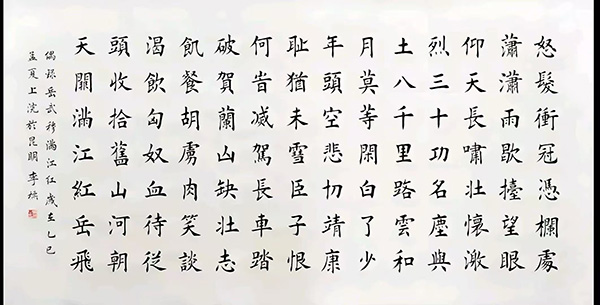 怒髮衝冠憑欄處
瀟瀟雨歇擡望眼
仰天長嘯壯懷激
烈三十功名塵與
土八千里路雲和
月莫等閑白了少
年頭空悲切靖康
恥猶未雪臣子恨
何旹滅駕長車踏
破賀蘭山缺壯志
飢餐胡虜肉笑談
渴飲匈奴血待從
頭收拾舊山河朝
天闕滿江紅岳飛
偶録岳武穆滿江紅歲在乙巳
孟夏上浣於昆明李